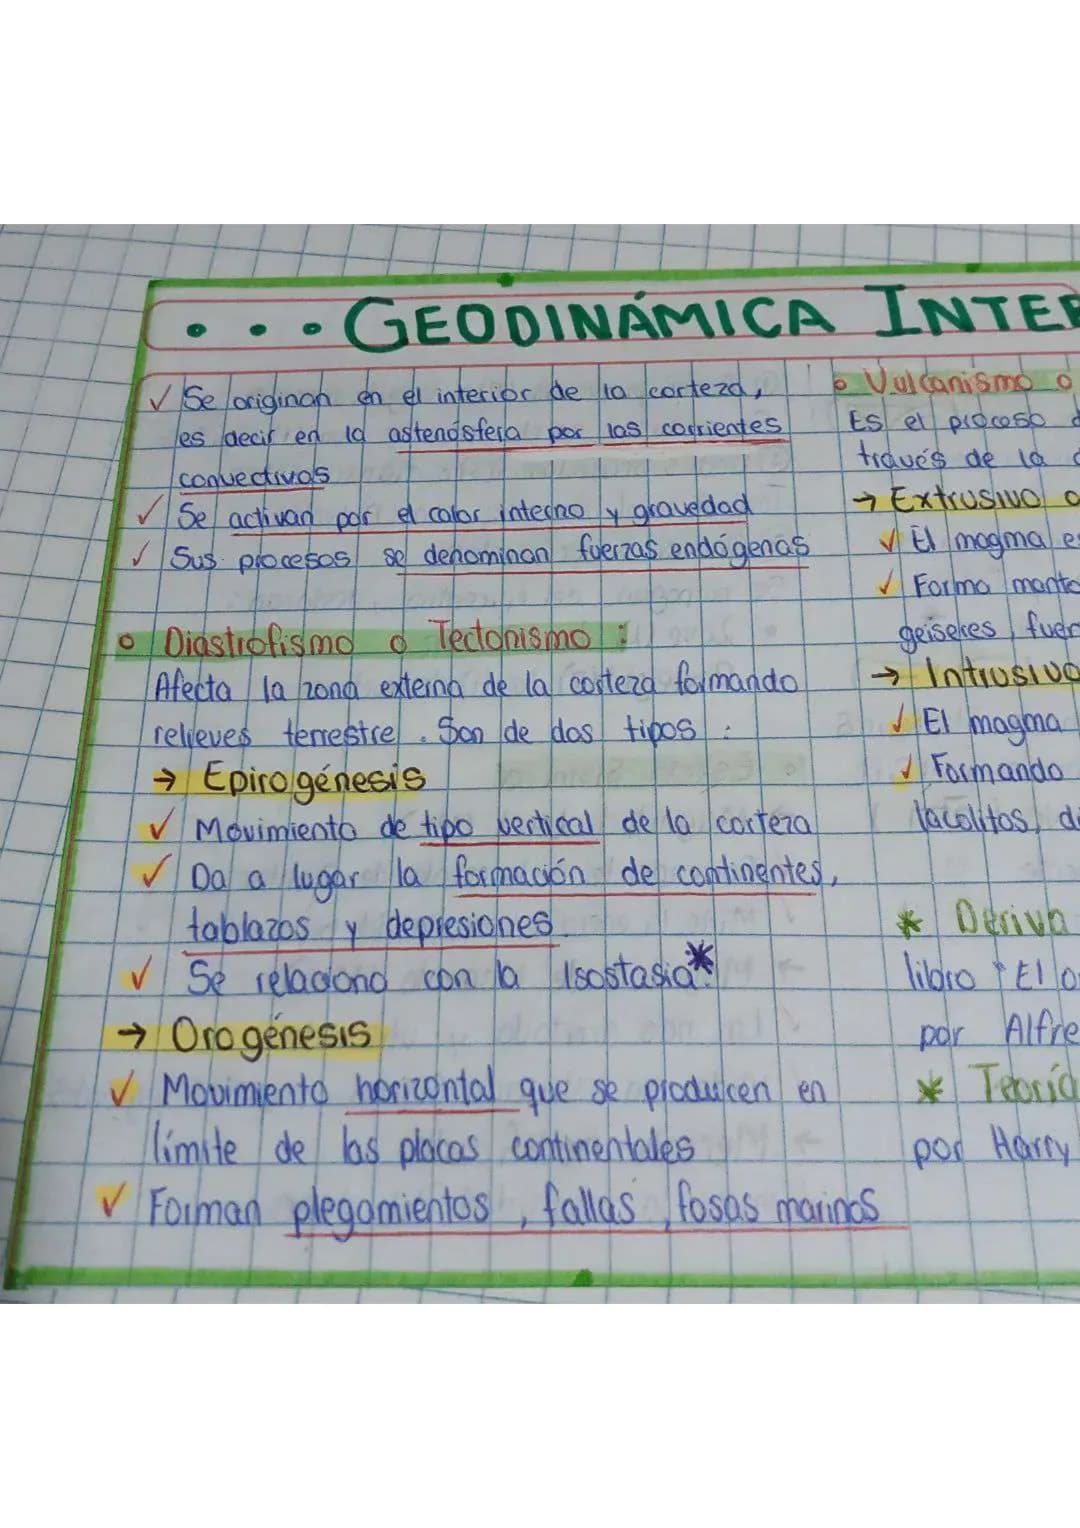 GEODINÁMICA INTER
✓ Se originan en el interior de la corteza,
es decir en la astenósfera por las corrientes
convectivas
✓ Se activan por el calor interno y gravedad
✓ Sus procesos se denominan fuerzas endógenas
o Diastrofismo o Tectonismo :
Afecta la zona externa de la corteza formando
relieves terrestre. Son de dos tipos :
→ Epirogénesis
✓ Movimiento de tipo vertical de la corteza
✓ Da a lugar la formación de continentes,
tablazos y depresiones
✓ Se relaciona con la Isostasia*
→ Orogénesis
✓ Movimiento horizontal que se producen en
límite de las placas continentales
✓ Forman plegamientos, fallas, fosas marinas
o Vulcanismo o
Es el proceso
través de la
→ Extrusivo o
✓ El magma
✓ Forma manto
geiseres, fuen
→ Intrusivo
✓ El magma
✓ Formando
lacolitos,
* Deriva
libro "El o
por Alfre
* Teoría
por Harry